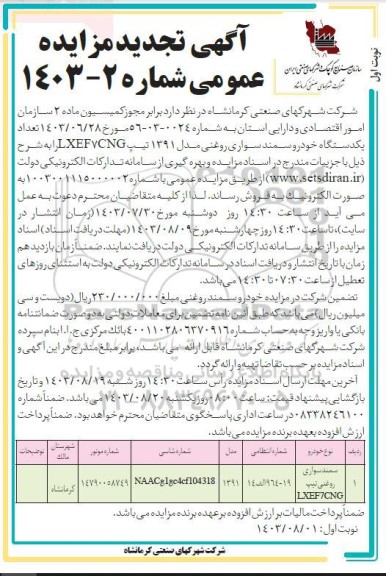 نوبت اول
آگهی تجدید مزایده
عمومی شماره ۲-۱۴۰۳
سازمان صنایع کوچک و شهرکهای صنعتی ایران
شرکت شهرکهای صنعتی کرمانشاه
شرکت شهرکهای صنعتی کرمانشاه در نظر دارد برابر مجوز کمیسیون ماده ۲ سازمان
امور اقتصادی و دارایی استان به شماره ۰۰۲۴-۰۳-۵۶ مورخ ۱۴۰۳/۰۶/۲۸ تعداد
یکدستگاه خودرو سمند سواری روغنی مدل ۱۳۹۱ تیپ LXEF7CNG را به شرح
ذیل با جزییات مندرج در اسناد مزایده و بهره گیری از سامانه تدارکات الکترونیکی دولت
(www.setsdiran.ir) از طریق مزایده عمومی با شماره ۱۰۰۳۰۰۱۱۱۵۰۰۰۰۰۲ به
صورت الکترونیک به فروش رساند. لذا از کلیه متقاضیان محترم دعوت به عمل
می آید از ساعت ۱۴:۳۰ روز دوشنبه مورخ ۱۴۰۳/۰۷/۳۰ (زمان انتشار در
سایت)، تا ساعت ۱۴:۳۰ روز چهارشنبه مورخ ۱۴۰۳/۰۸/۰۹ (مهلت دریافت اسناد) اسناد
مزایده را از طریق سامانه تدارکات الکترونیکی دولت دریافت نمایند. ضمنا زمان بازدید هم
زمان با تاریخ انتشار و دریافت اسناد در سامانه تدارکات الکترونیکی دولت به استثنای روزهای
تعطیل از ساعت ۰۷:۳۰ تا ۱۴:۳۰ می باشد.
تضمین شرکت در مزایده خودرو سمند روغنی مبلغ ۲۳۰/۰۰۰/۰۰۰ ریال (دویست و سی
میلیون ریال) می باشد که طبق آئین نامه تضمین برای معاملات دولتی به دو صورت ضمانتنامه
بانکی یا واریز وجه به حساب شماره ۴۰۰۱۱۰۲۸۰۶۳۷۰۹۱۶ بانک مرکزی ج.ا.ا بنام سپرده
شرکت شهرکهای صنعتی کرمانشاه قابل ارائه می باشد، برابر مبلغ مندرج در این آگهی و
اسناد مزایده بر حسب تقاضا تهیه و ارائه گردد.
آخرین مهلت ارسال اسناد مزایده راس ساعت ۱۴:۳۰ روز شنبه ۱۴۰۳/۰۸/۱۹ و تاریخ
بازگشایی پیشنهاد قیمت: ساعت ۰۸:۰۰ روز یکشنبه ۱۴۰۳/۰۸/۲۰ می باشد. ضمنا شماره
۰۸۳۳۸۲۴۶۱۰۰ در ساعت اداری پاسخگوی متقاضیان محترم خواهد بود. ضمنا پرداخت
ارزش افزوده بعهده برنده مزایده می باشد.
ردیف نوع خودرو شماره انتظامی مدل شماره شاسی شماره موتور شهرستان مالک توضیحات
۱ سمند سواری روغنی تیپ LXEF7CNG ۱۹-۹۶۴الف۱۴ ۱۳۹۱ NAACg1gc4cf104318 ۱۴۷۹۰۰۵۸۷۴۹ کرمانشاه
ضمنا پرداخت مالیات بر ارزش افزوده بر عهده برنده مزایده می باشد.
نوبت اول: ۱۴۰۳/۰۸/۰۱
شرکت شهرکهای صنعتی کرمانشاه